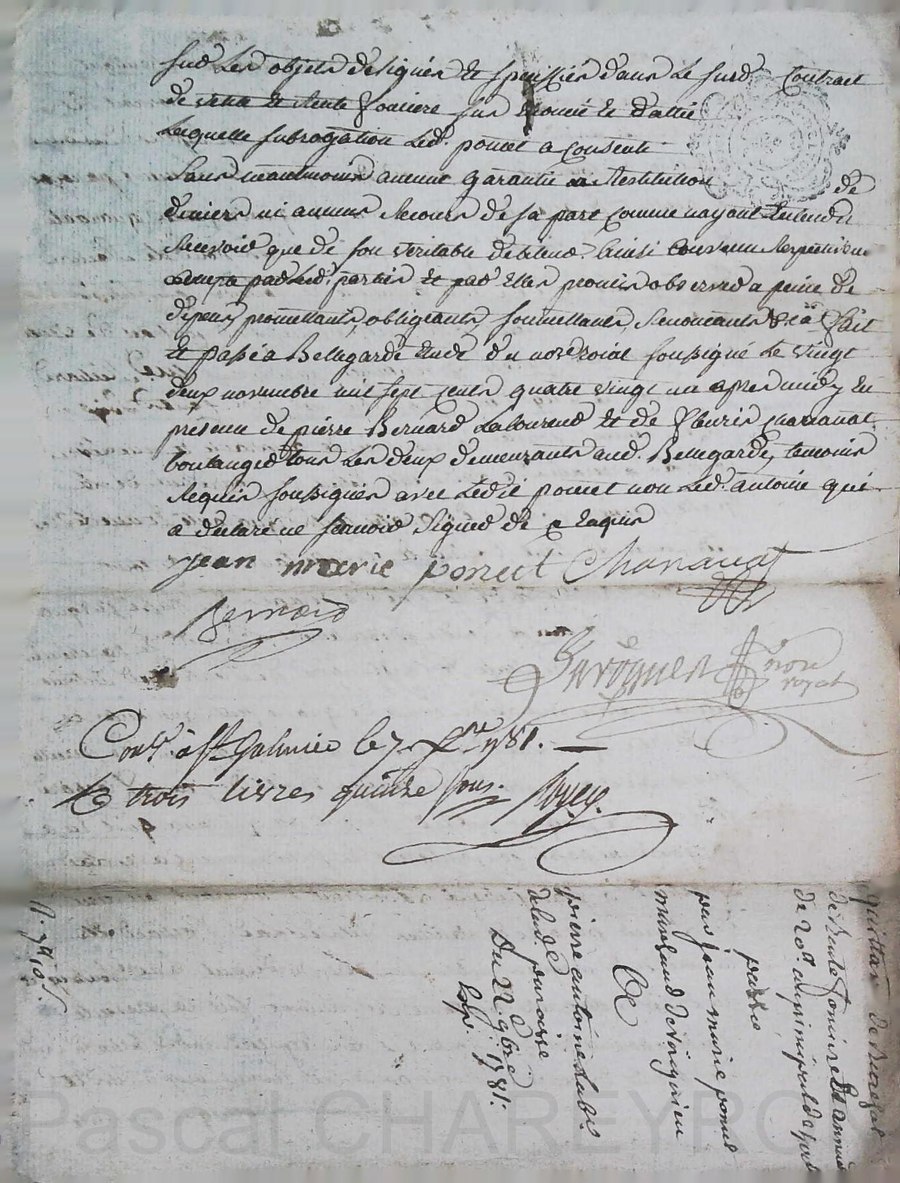 sur les objets désignés et spéciffiés dans le surd. Contract
de vente et rente fonciere sus énoncé et datté
laquelle subrogation led. poncet a consenti
sans neantmoins aucune garantie ni restitution de
deniers ni aucuns recours de sa part comme nayant entendu
recevoir que de son veritable debiteur. ainsi convenu
par lesd. parties et par elles promis observer a peine de
depens, promettants, obligeants, soumettants, renoncants &a fait
et passé a Bellegarde etude du no.re roial soussigné le vingt
deux novembre mil sept cents quatre vingt un apres midy en
presence de pierre Bernard laboureur et de fleuris chanavat
boulanger tous les deux demeurants aud. Bellegarde, temoins
requis soussignés avec ledit poncet non led. antoine qui
a déclaré ne scavoir signer de ce enquis
jean marie poncet Chanavat
Bernard
no.re royal
Con.lé à St Galmier le 7 Xbre 1781.
R. trois livres quinze sous.
quittance de
de rente fonciere et annuel
de 20 # au principal de
passé
par jean marie poncet
marchand de
à
pierre antoine
de la d. parroisse
Du 22 9bre 1781.
Exp.